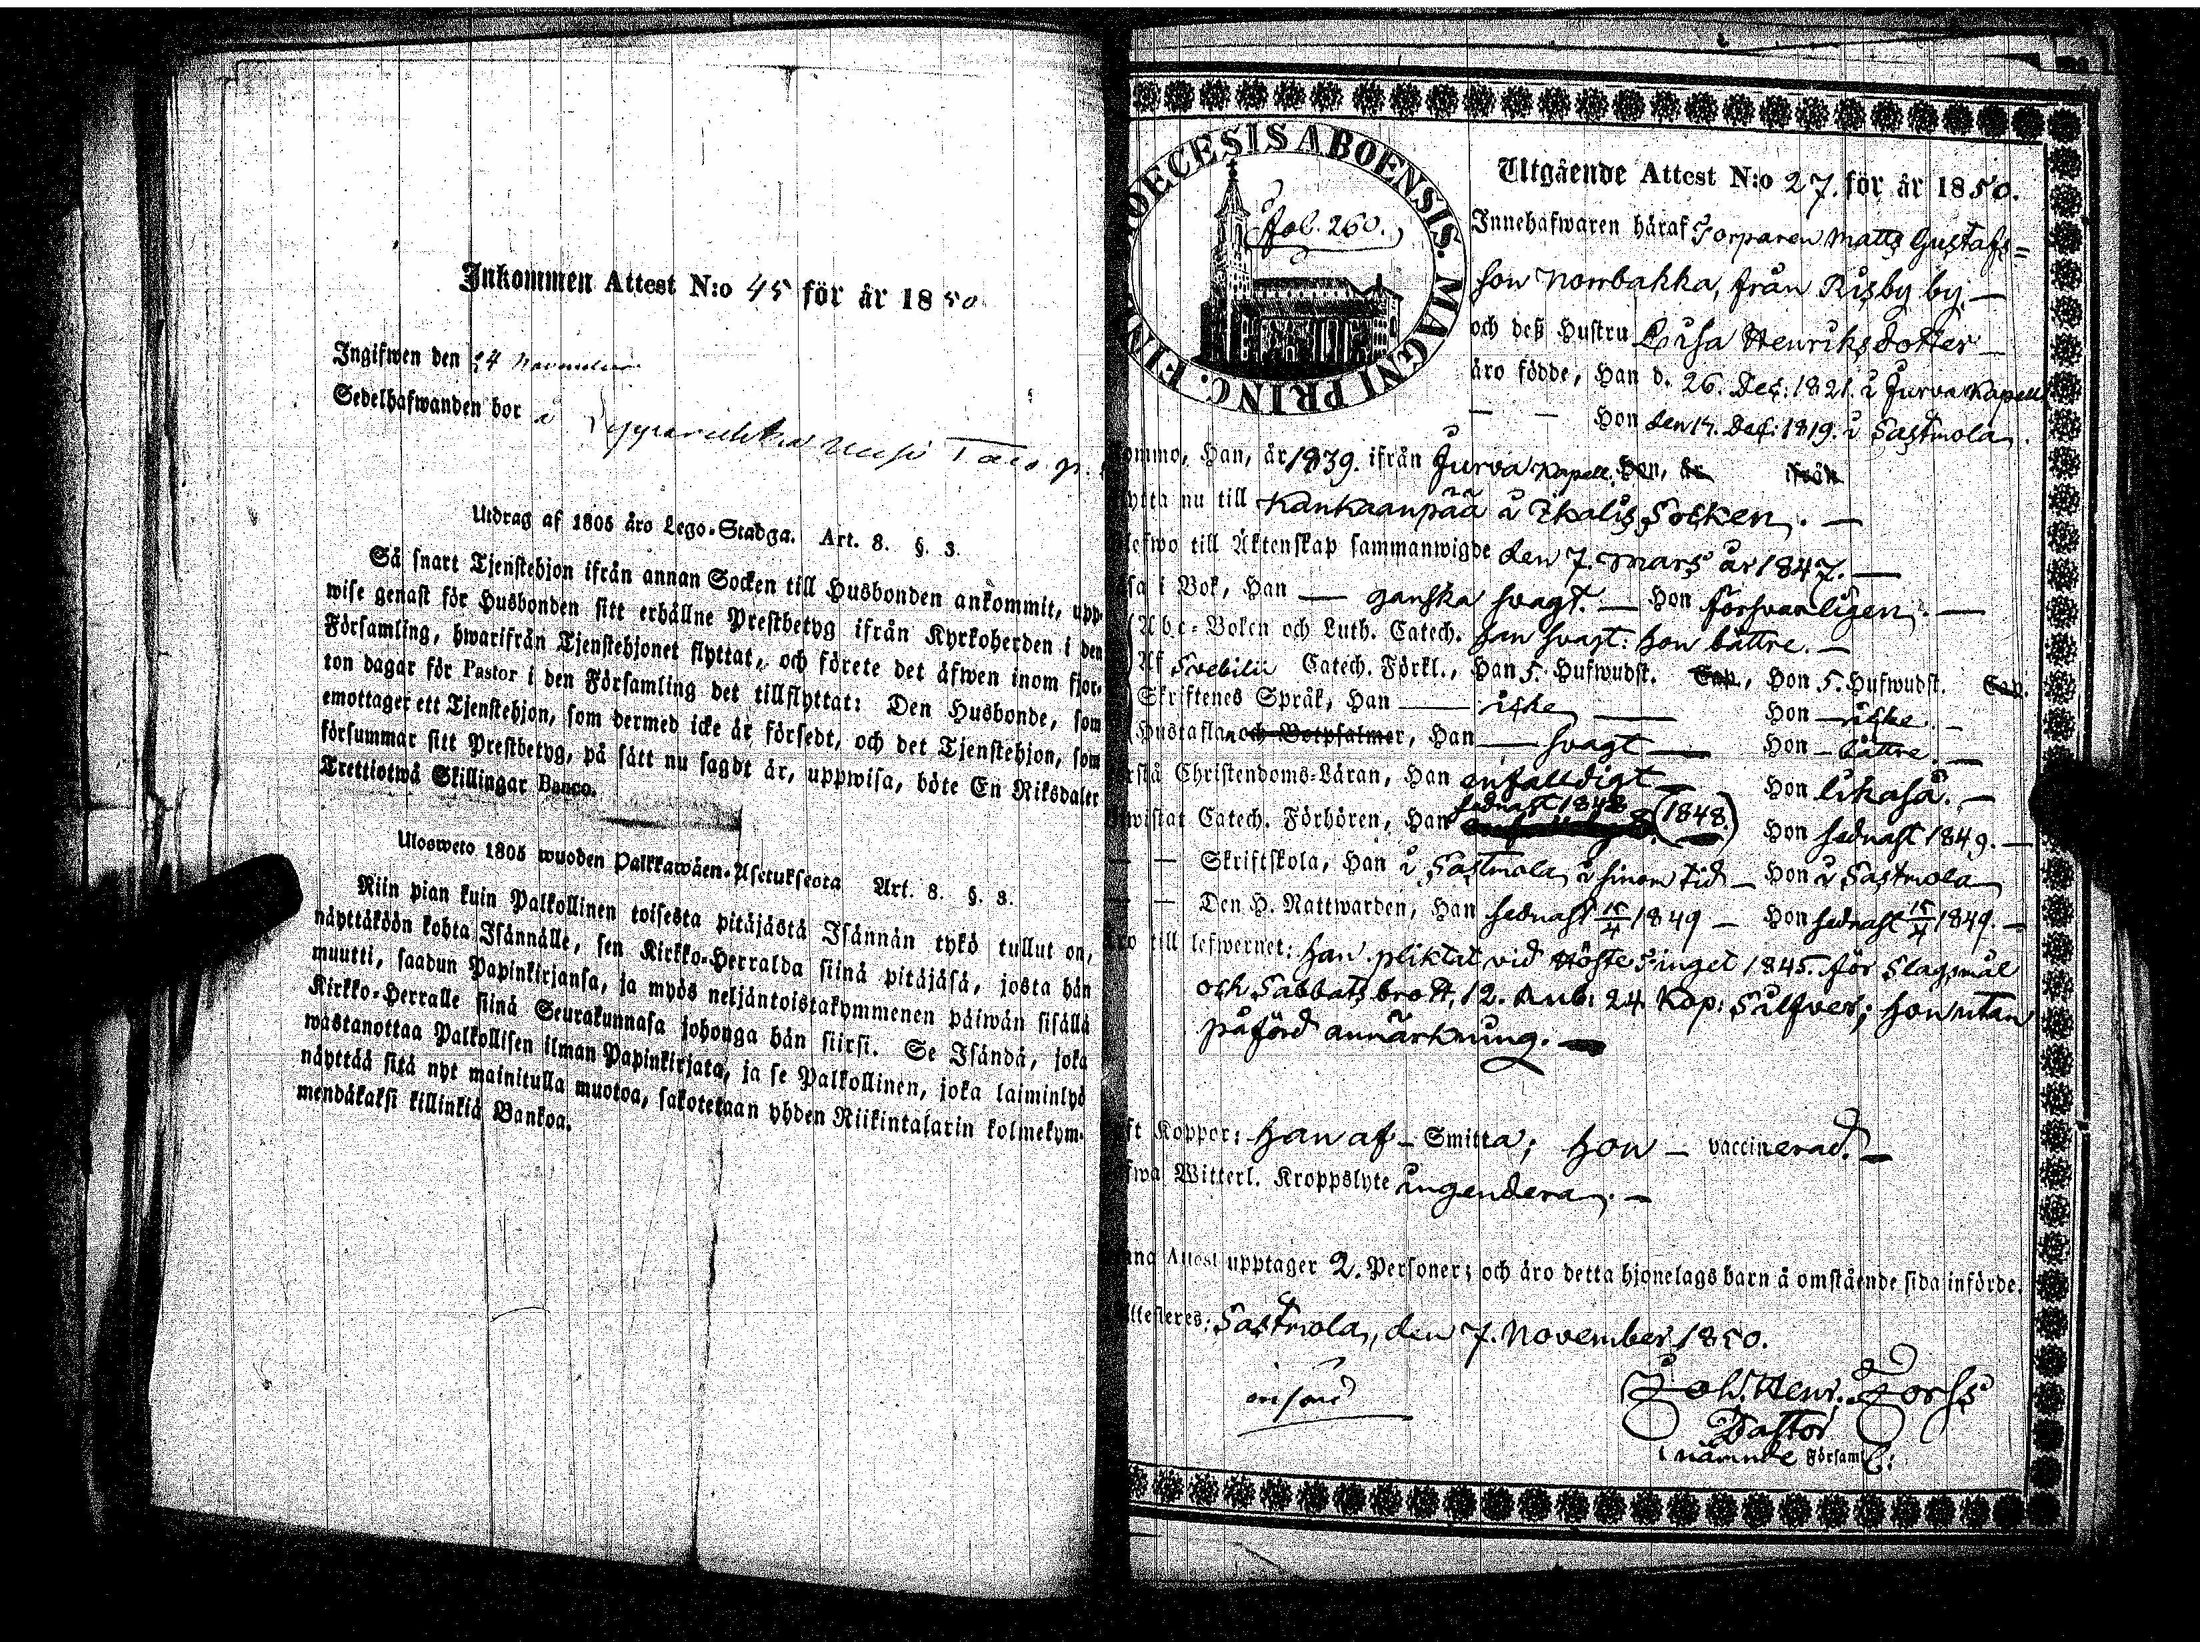 Inkommen Attest N:o 45 för år 1850
Ingifwen den 24 November
Sedelhafwanden bor å
Utdrag af 1805 års Lego-Stadga. Art. 8. §. 3.
Så snart Tjenstehjon ifrån annan Socken till Husbonden ankommit, upp-
wise genast för Husbonden sitt erhållne Prestbetyg ifrån Kyrkoherden i den
Församling, hwarifrån Tjenstehjonet flyttat, och förete det äfwen inom fjor-
ton dagar för Pastor i den Församling det tillflyttat: Den Husbonde, som
emottager ett Tjenstehjon, som dermed icke är försedt, och det Tjenstehjon, som
försummar sitt Prestbetyg, på sätt nu sagdt är, uppwisa, böte En Riksdaler
Trettiotwå Skillingar Banco.
Ulosweto 1805 wuoden Palkkawäen-Asetuksesta Art. 8. §. 3.
Niin pian kuin Palkollinen toisesta pitäjästä Isännän tykö tullut on,
näyttäköön kohta Isännälle, sen Kirkko-Herralda siinä pitäjäsä, josta hän
muutti, saadun Papinkirjansa, ja myös neljäntoistakymmenen päiwän sisällä
Kirkko-Herralle siinä Seurakunnasa johonga hän siirsi. Se Isändä, joka
wastanottaa Palkollisen ilman Papinkirjata, ja se Palkollinen, joka laiminlyö
näyttää sitä nyt mainitulla muotoa, sakotetaan yhden Riikintalarin kolmekym-
mendäkaksi killinkiä Bankoa.
DIOECESIS ABOENSIS. MAGNI PRINC. FINL
fol. 260.
Utgående Attest N:o 27. för år 1850.
Innehafwaren häraf Torparen Matts Gustafs=
son Norrbakka, från Risby by. —
och deß Hustru Lisa Henriksdotter —
äro födde, Han d. 26. Dec: 1821. i Jurva Kapell
— — Hon den 17. Dec: 1819. i Sastmola.
kommo, Han, år 1839. ifrån Jurva Kapell. Hon, år ifrån
flytta nu till Kankaanpää i Ikalis Socken. —
blefwo till Äktenskap sammanwigde den 7. Mars år 1847. —
läsa i Bok, Han — ganska svagt. — Hon försvarligen. —
Abc-Boken och Luth. Catech. han svagt: hon bättre. —
Af Svebilii Catech. Förkl., Han 5. Hufwudst. Cap., Hon 5. Hufwudst. Cap.
Skriftenes Språk, Han — icke — Hon — icke. —
Hustaflan och Botpsalmer, Han — svagt — Hon — bättre. —
förstå Christendoms-Läran, Han enfalldigt — Hon likaså. —
bewistat Catech. Förhören, Han sednast 1848 (1848.) Hon sednast 1849. —
— — Skriftskola, Han i Sastmola i sinom tid — Hon i Sastmola
— — Den H. Nattwarden, Han sednast 15/4 1849 — Hon sednast 15/4 1849. —
äro till lefwernet: han pliktat vid HösteTinget 1845. för Slagsmål
och Sabbatsbrott, 12. Rub: 24. Kop: Silfver; hon utan
påförd anmärkning. —
haft Koppor: han af — Smitta; hon — vaccinerad. —
hafwa Witterl. Kroppslyte ingendera. —
Denna Attest upptager 2. Personer; och äro detta hjonelags barn å omstående sida införde.
Attesteres: Sastmola, den 7. November 1850.
införd
Joh. Henr. Forss
Pastor
i nämnde Församl: